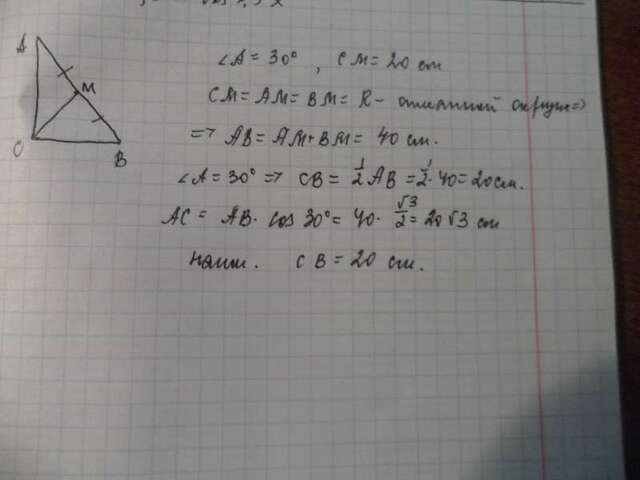 A
M
C
B
∠A = 30°, CM = 20 см
CM = AM = BM = R - описанной окружн =>
=> AB = AM + BM = 40 см.
∠A = 30° => CB = 1/2 AB = 1/2 · 40 = 20 см.
AC = AB · cos 30° = 40 · √3/2 = 20√3 см
наим. CB = 20 см.